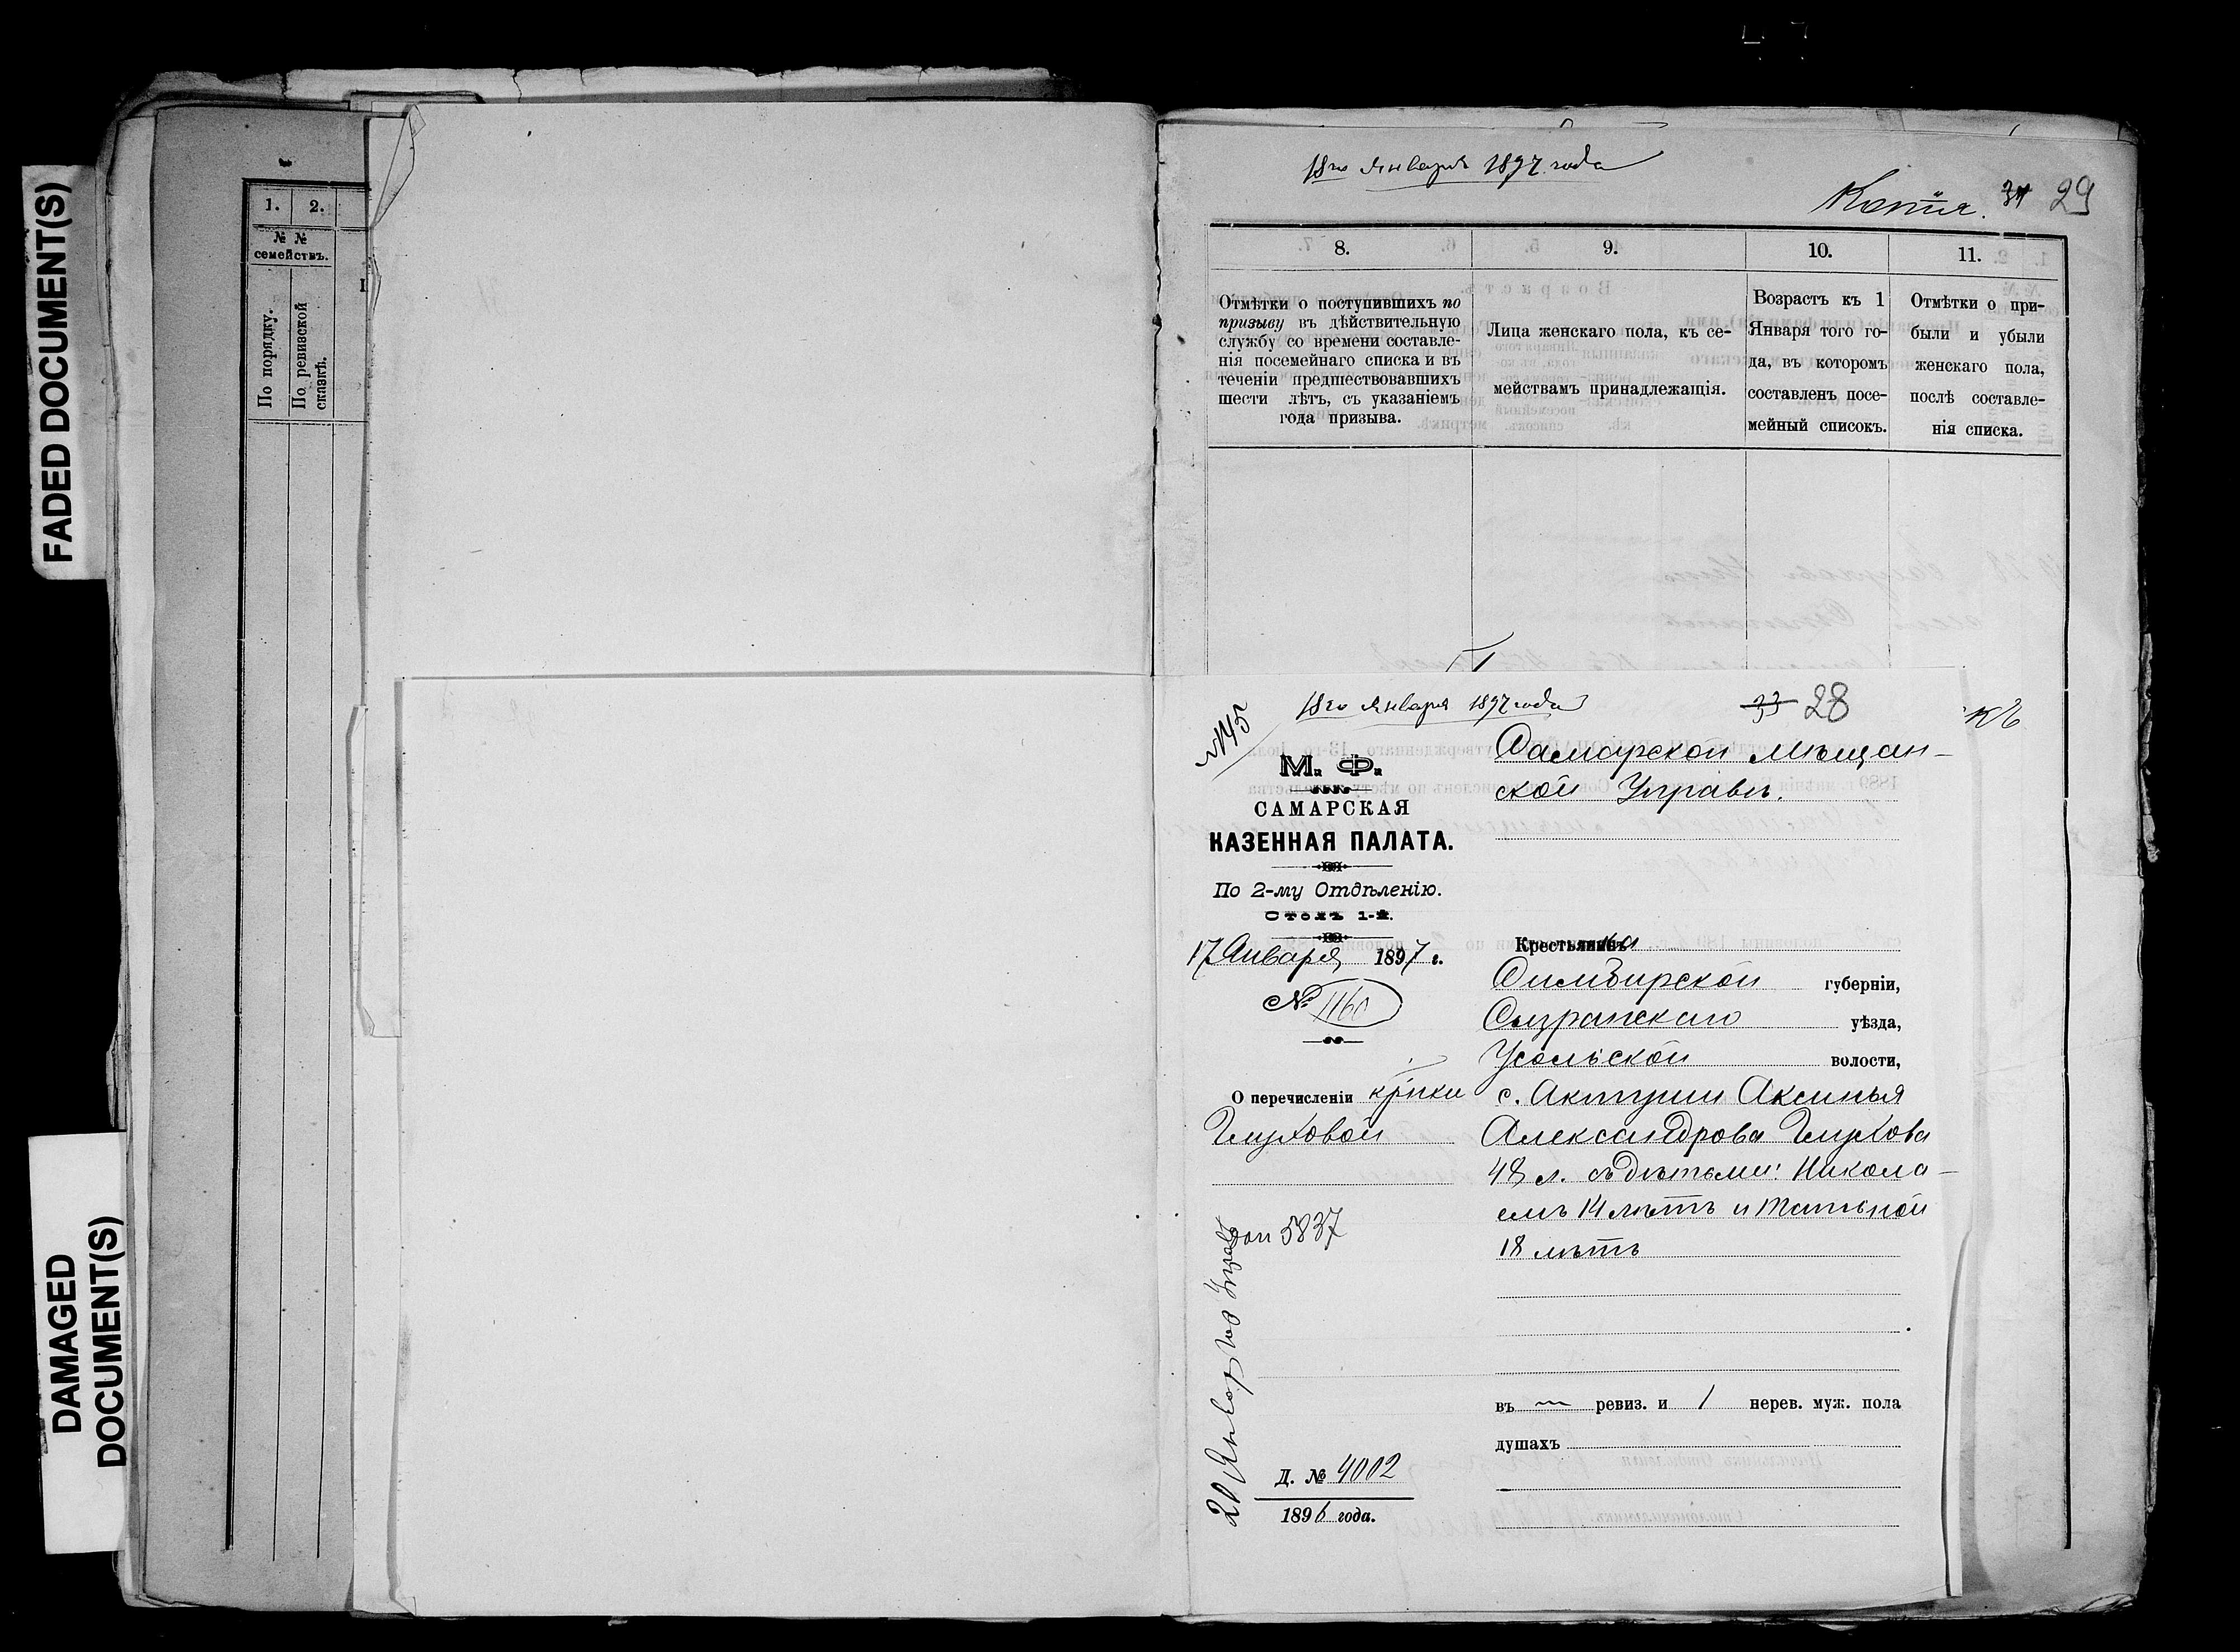 FADED DOCUMENT(S)
DAMAGED
DOCUMENT(S)
1. 2.
№ №
семействъ.
По порядку.
По ревизской
сказкѣ.
18го Января 1897 года
Копія. 29
8. 9. 10. 11.
Отмѣтки о поступившихъ по
призыву въ дѣйствительную
службу со времени составле-
нія посемейнаго списка и въ
теченіи предшествовавшихъ
шести лѣтъ, съ указаніемъ
года призыва.
Лица женскаго пола, къ се-
мействамъ принадлежащія.
Возрастъ къ 1
Января того го-
да, въ которомъ
составленъ посе-
мейный списокъ.
Отмѣтки о при-
были и убыли
женскаго пола,
послѣ составле-
нія списка.
18го Января 1897 года
33 28
№145
М. Ф.
САМАРСКАЯ
КАЗЕННАЯ ПАЛАТА.
По 2-му Отдѣленію.
Столъ 1-й.
17 Января 1897 г.
№ 1160
О перечисленіи кр-нки
Глуховой
5837
Д. № 4002
1896 года.
Самарской Мѣщан-
ской Управѣ.
Крестьянка
Симбирской губерніи,
Сызранскаго уѣзда,
Усольской волости,
с. Актуши Аксинья
Александрова Глухова
48 л. съ дѣтьми: Никола-
емъ 14 лѣтъ и Татьяной
18 лѣтъ
въ ревиз. и 1 нерев. муж. пола
душахъ